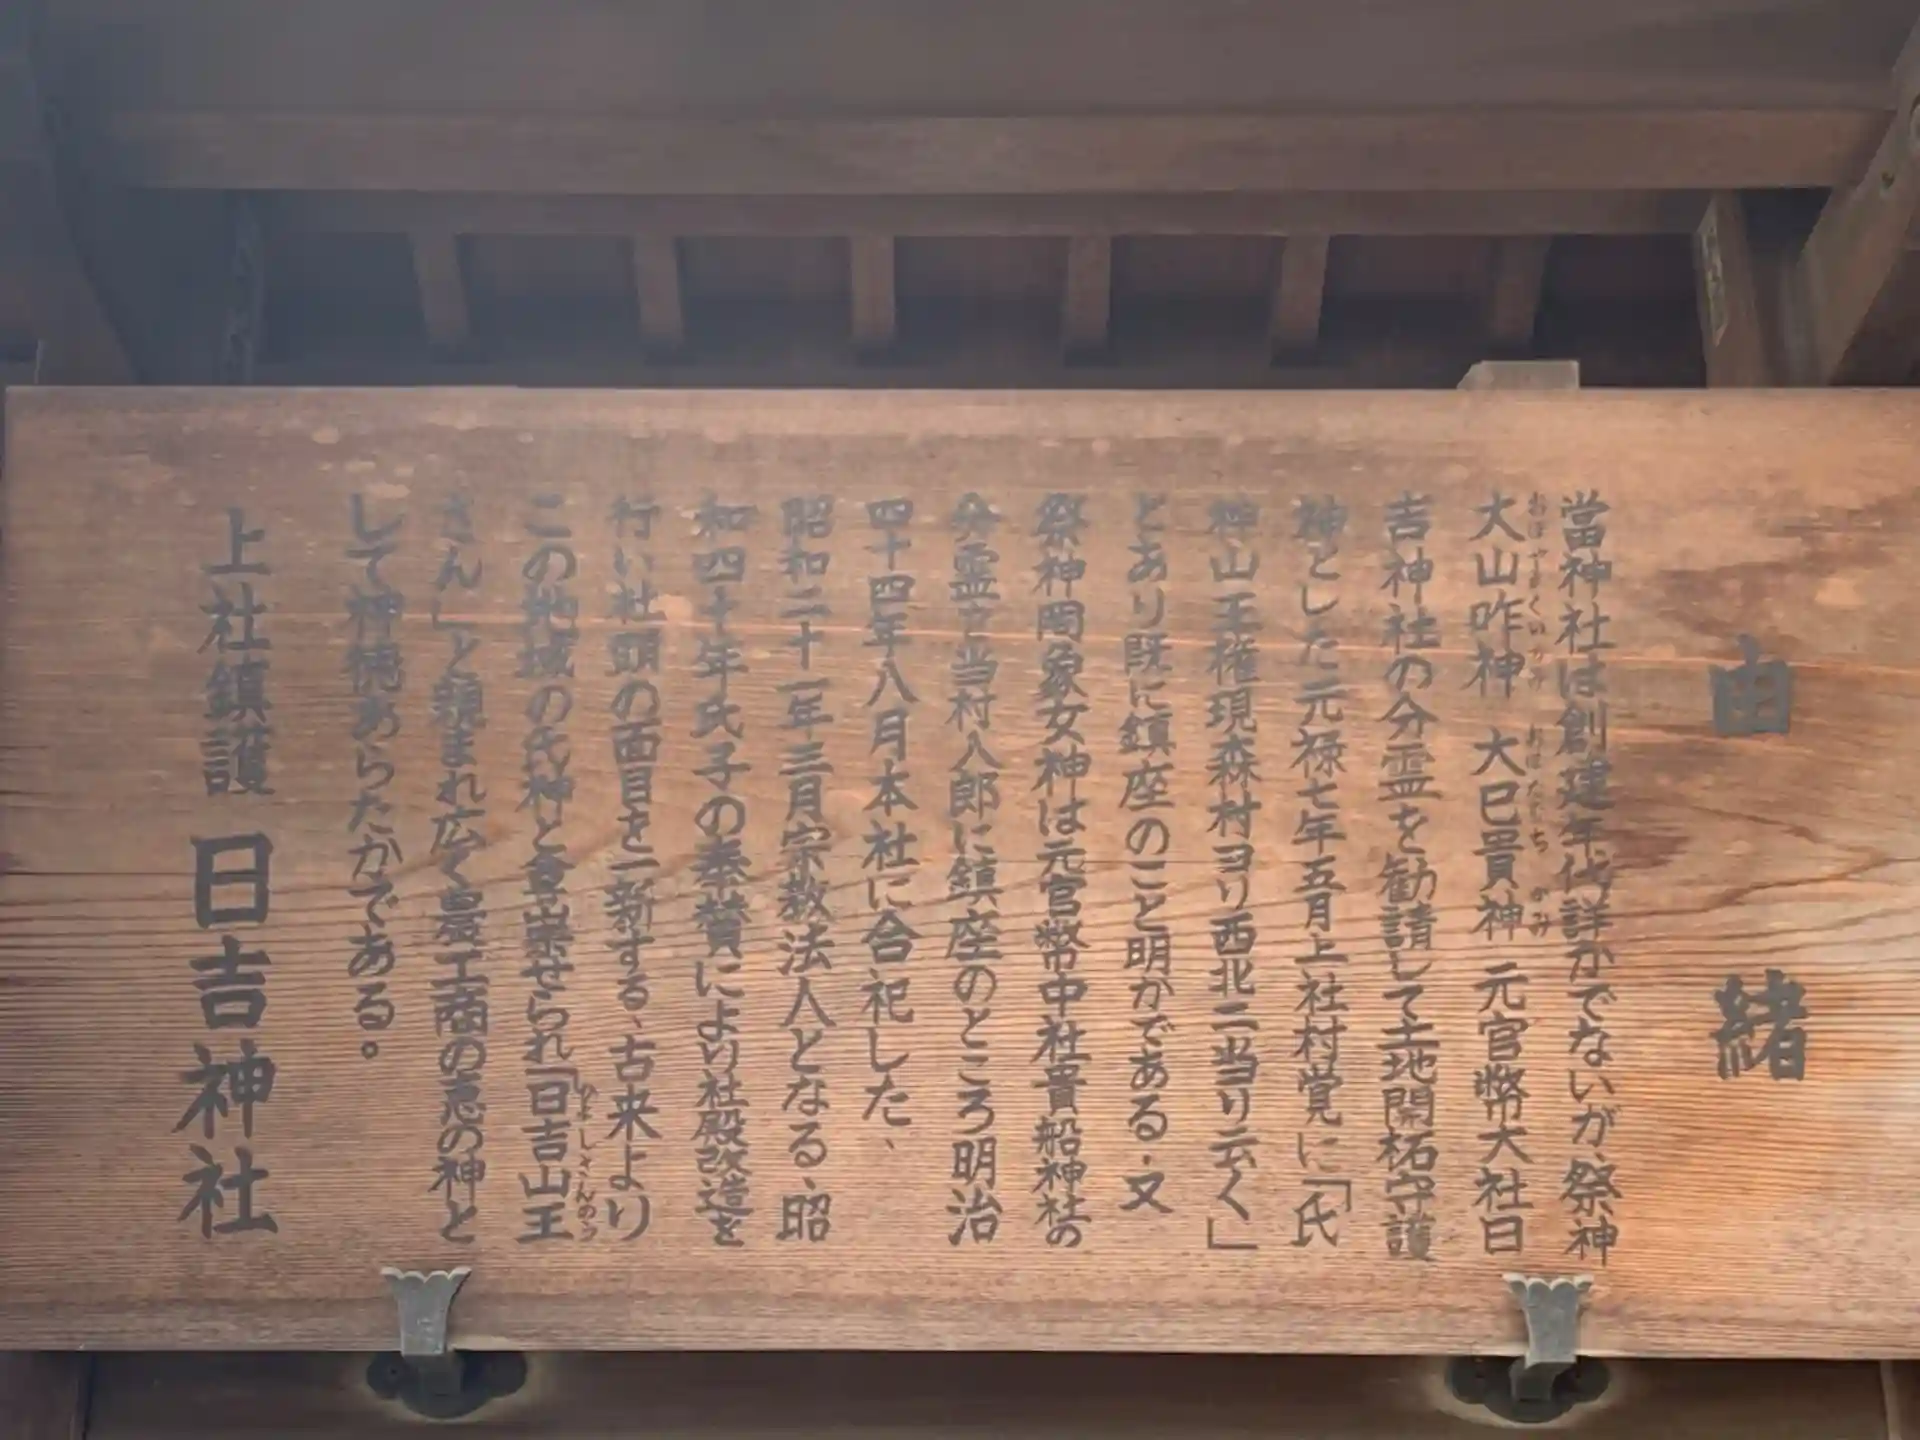 由緒
當神社は創建年代詳かでないが、祭神
大山咋神 大巳貴神 元官幣大社日
おほやまくいかみ おほなむちかみ
吉神社の分霊を勧請して土地開柘守護
神とした元禄七年五月上社村覚に「氏
神山王権現森村ヨリ西北ニ当り云く」
とあり既に鎮座のこと明かである.又
祭神罔象女神は元官幣中社貴船神社の
分霊で当村入郎に鎮座のところ明治
四十四年八月本社に合祀した、
昭和二十一年三月宗教法人となる、昭
和四十年氏子の奉賛により社殿改造を
行い社頭の面目を一新する、古来より
この地域の氏神と尊崇せられ「日吉山王
ひよしさんのう
さん」と親まれ広く農工商の恵の神と
して神徳あらたかである。
上社鎮護 日吉神社